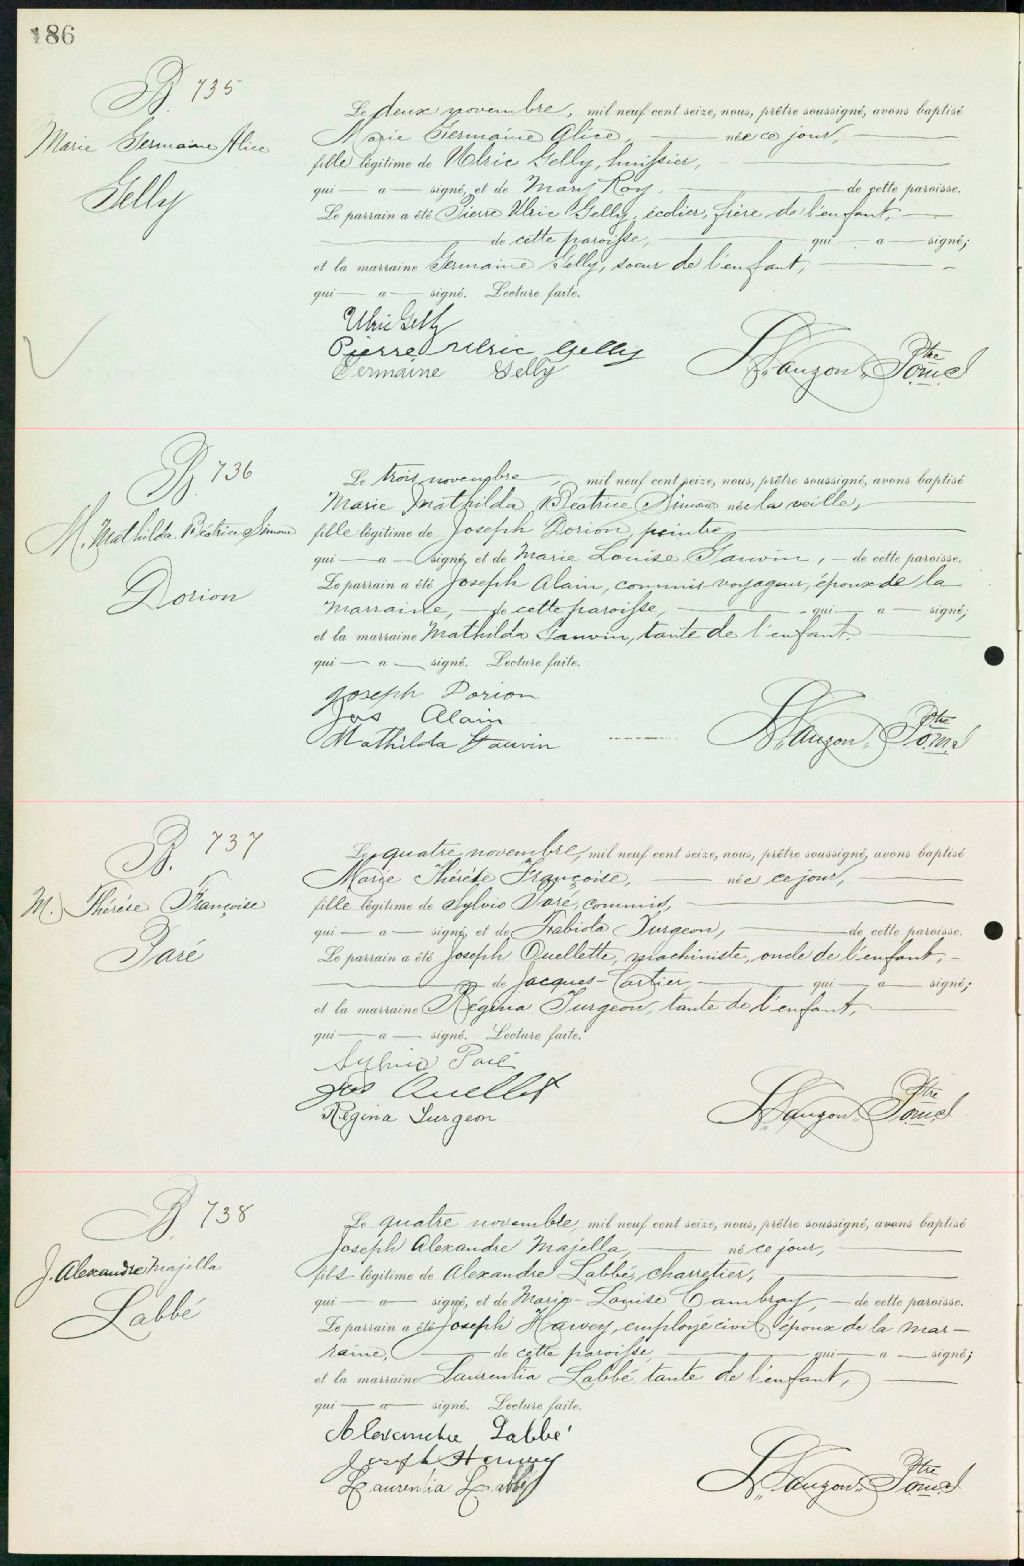 186
B. 735
Marie Germaine Alice
Gelly
Le deux novembre, mil neuf cent seize, nous, prêtre soussigné, avons baptisé
Marie Germaine Alice, née ce jour,
fille légitime de Ulric Gelly, huissier,
qui a signé, et de Mary Roy, de cette paroisse.
Le parrain a été Pierre Ulric Gelly, écolier, frère de l'enfant,
de cette paroisse, qui a signé;
et la marraine Germaine Gelly, soeur de l'enfant,
qui a signé. Lecture faite.
Ulric Gelly
Pierre Ulric Gelly
Germaine Gelly
Lauzon, Ptre
B. 736
M. Mathilda Béatrice Simone
Dorion
Le trois novembre, mil neuf cent seize, nous, prêtre soussigné, avons baptisé
Marie Mathilda Béatrice Simone née la veille,
fille légitime de Joseph Dorion peintre,
qui a signé, et de Marie Louise Gauvin, de cette paroisse.
Le parrain a été Joseph Alain, commis voyageur, époux de la
marraine, de cette paroisse, qui a signé;
et la marraine Mathilda Gauvin, tante de l'enfant,
qui a signé. Lecture faite.
Joseph Dorion
Jos Alain
Mathilda Gauvin
Lauzon, Ptre
B. 737
M. Thérèse Françoise
Paré
Le quatre novembre, mil neuf cent seize, nous, prêtre soussigné, avons baptisé
Marie Thérèse Françoise, née ce jour,
fille légitime de Sylvio Paré, commis,
qui a signé, et de Fabiola Turgeon, de cette paroisse.
Le parrain a été Joseph Ouellette, machiniste, oncle de l'enfant,
de Jacques-Cartier, qui a signé;
et la marraine Régina Turgeon, tante de l'enfant,
qui a signé. Lecture faite.
Sylvio Paré
Jos Ouellet
Régina Turgeon
Lauzon, Ptre
B. 738
J. Alexandre Majella
Labbé
Le quatre novembre, mil neuf cent seize, nous, prêtre soussigné, avons baptisé
Joseph Alexandre Majella, né ce jour,
fils légitime de Alexandre Labbé, charretier,
qui a signé, et de Marie-Louise Cambray, de cette paroisse.
Le parrain a été Joseph Harvey, employé civil, époux de la mar-
raine, de cette paroisse, qui a signé;
et la marraine Laurentia Labbé, tante de l'enfant,
qui a signé. Lecture faite.
Alexandre Labbé
Joseph Harvey
Laurentia Labbé
Lauzon, Ptre